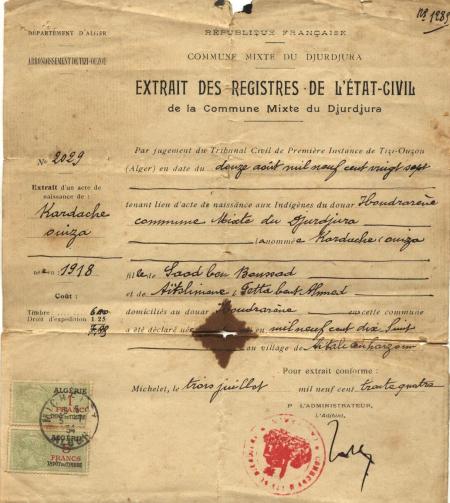 Nº 1285
DÉPARTEMENT D'ALGER
ARRONDISSEMENT DE TIZI-OUZOU
RÉPUBLIQUE FRANÇAISE
COMMUNE MIXTE DU DJURDJURA
EXTRAIT DES REGISTRES DE L'ÉTAT-CIVIL
de la Commune Mixte du Djurdjura
Nº 2029
Extrait d'un acte de
naissance de :
Kardache
ouiza
né e en 1918
Coût :
Timbre 6.00
Droit d'expédition 1 25
Par jugement du Tribunal Civil de Première Instance de Tizi-Ouzou
(Alger) en date du douze août mil neuf cent vingt sept
tenant lieu d'acte de naissance aux Indigènes du douar Iboudrarène
commune Mixte du Djurdjura
(a nommée Kardache ouiza
fille de Saad ben
et de Aitslimane Tetta bent Ahmed
domiciliés au douar Iboudrarène susdite commune
a été déclaré née en mil neuf cent dix huit
au village de
Pour extrait conforme :
Michelet, le trois juillet mil neuf cent trente quatre
P L'ADMINISTRATEUR,
L'Adjoint,
ALGÉRIE
FRANCS
ALGÉRIE
FRANCS
MICHELET